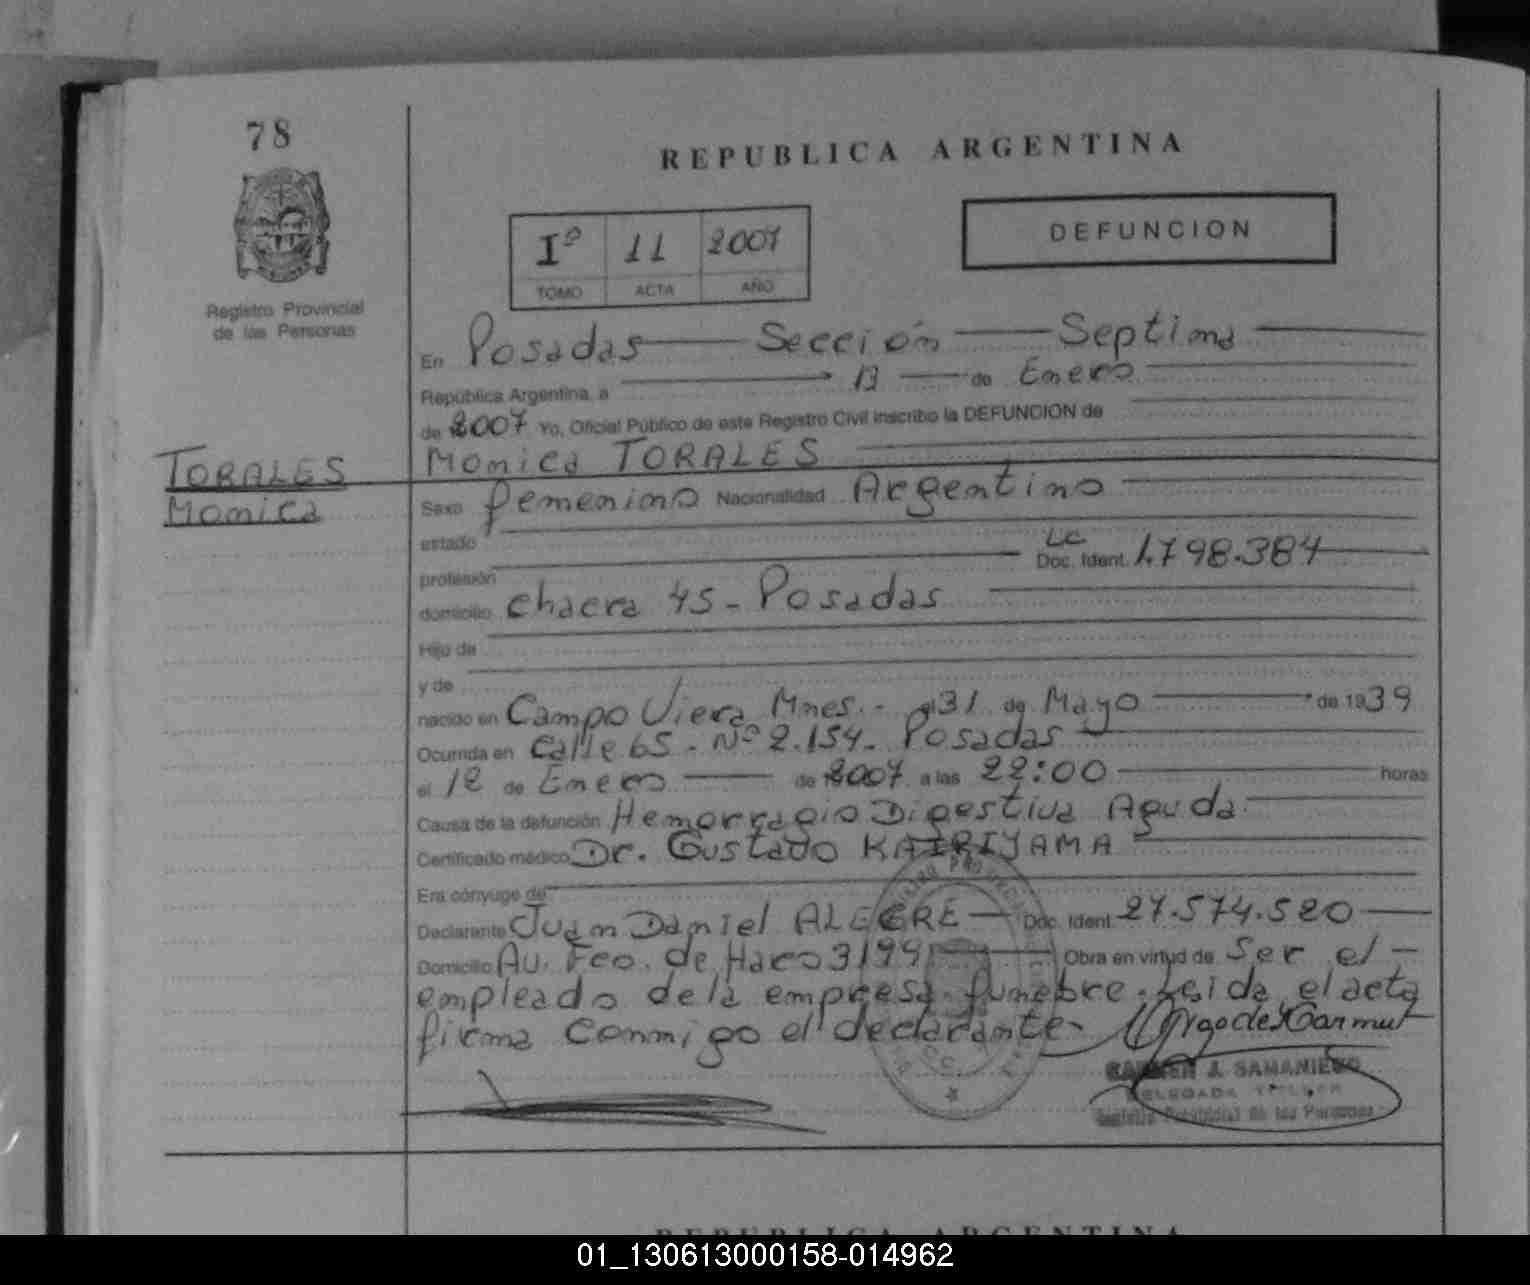 78
REPUBLICA ARGENTINA
Registro Provincial
de las Personas
Iº 11 2007
TOMO ACTA AÑO
DEFUNCION
En Posadas Sección Septima
República Argentina, a 13 de Enero
de 2007 Yo, Oficial Público de este Registro Civil inscribo la DEFUNCION de
TORALES
Monica
Monica TORALES
Sexo femenino Nacionalidad Argentino
estado
profesión LC Doc. Ident. 1.798.384
domicilio chacra 45 - Posadas
Hijo de
y de
nacido en Campo Viera Mnes. - el 31 de Mayo de 1939
Ocurrida en Calle 65 - Nº 2.154 - Posadas
el 12 de Enero de 2007 a las 22:00 horas
Causa de la defunción Hemorragia Digestiva Aguda
Certificado médico Dr. Gustavo KAIRIYAMA
Era cónyuge de
Declarante Juan Daniel ALEGRE Doc. Ident. 27.574.520
Domicilio Av. Fco. de Haro 3199 Obra en virtud de Ser el
empleado de la empresa funebre. Leida el acta
firma conmigo el declarante
CARMEN J. SAMANIEGO
DELEGADA TITULAR
Registro Provincial de las Personas
REPUBLICA ARGENTINA
01_130613000158-014962